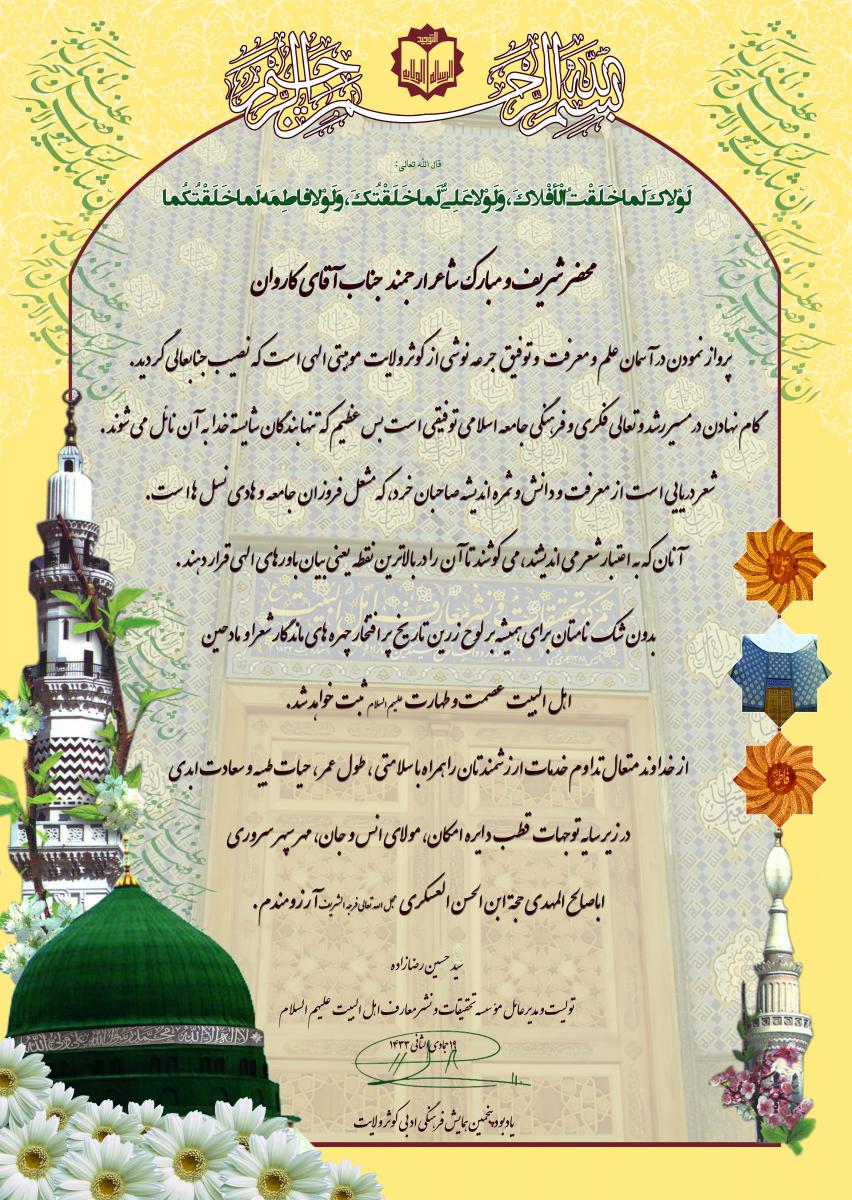 بسم الله الرحمن الرحیم
التوحید
الرسالة الولایة
قال الله تعالی:
لَوْلاكَ لَما خَلَقْتُ الْأَفْلاكَ، وَلَوْلا عَلِيٌّ لَما خَلَقْتُكَ، وَلَوْلا فاطِمَه لَما خَلَقْتُكُما
محضر شریف و مبارک شاعر ارجمند جناب آقای کاروان
پرواز نمودن در آسمان علم و معرفت و توفیق جرعه نوشی از کوثر ولایت موهبتی الهی است که نصیب جنابعالی گردید.
گام نهادن در مسیر رشد و تعالی فکری و فرهنگی جامعه اسلامی توفیقی است بس عظیم که تنها بندگان شایسته خدا به آن نائل می شوند.
شعر دریایی است از معرفت و دانش و ثمره اندیشه صاحبان خرد، که مشعل فروزان جامعه و هادی نسل ها است.
آنان که به اعتبار شعر می اندیشند، می کوشند تا آن را در بالاترین نقطه یعنی بیان باورهای الهی قرار دهند.
بدون شک نامتان برای همیشه بر لوح زرین تاریخ پر افتخار چهره های ماندگار شعرا و مادحین
اهل البیت عصمت و طهارت علیهم السلام ثبت خواهد شد.
از خداوند متعال تداوم خدمات ارزشمندتان را همراه با سلامتی، طول عمر، حیات طیبه و سعادت ابدی
در زیر سایه توجهات قطب دایره امکان، مولای انس و جان، مهر سپهر سروری
اباصالح المهدی حجة ابن الحسن العسکری عجل الله تعالی فرجه الشریف آرزومندم.
سید حسین رضازاده
تولیت و مدیر عامل مؤسسه تحقیقات و نشر معارف اهل البیت علیهم السلام
۱۹ جمادی الثانی ۱۴۳۳
یادبود پنجمین همایش فرهنگی ادبی کوثر ولایت
علی
فاطمة